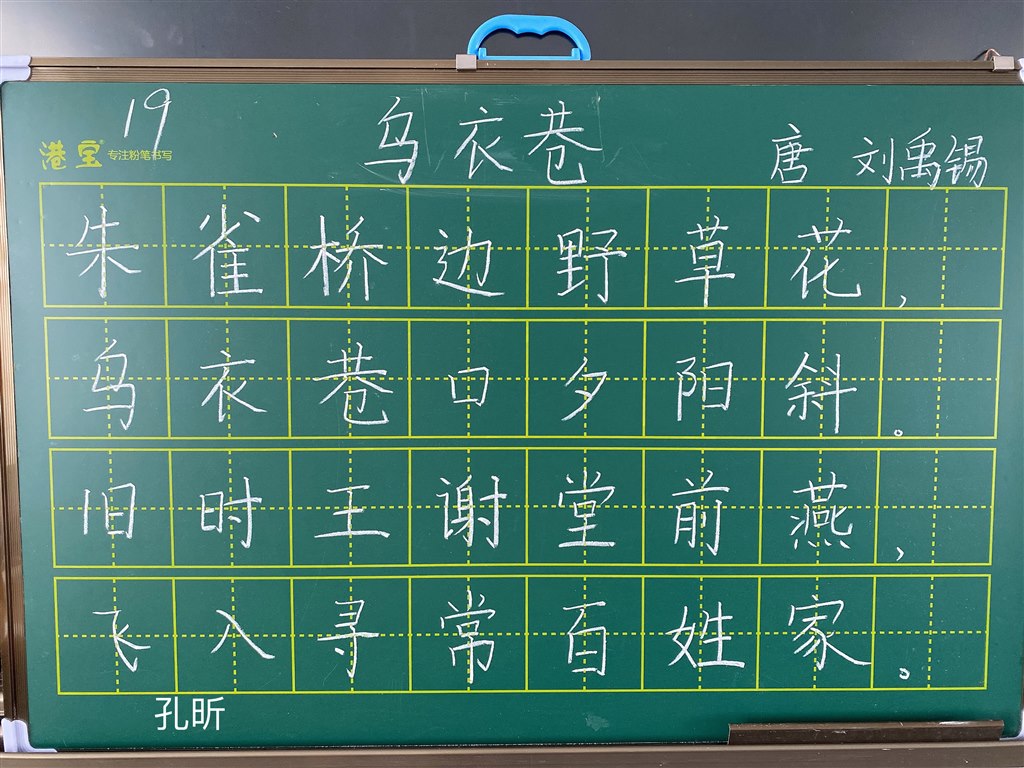 19
乌衣巷
唐 刘禹锡
港宝 专注粉笔书写
朱雀桥边野草花,
乌衣巷口夕阳斜。
旧时王谢堂前燕,
飞入寻常百姓家。
孔昕